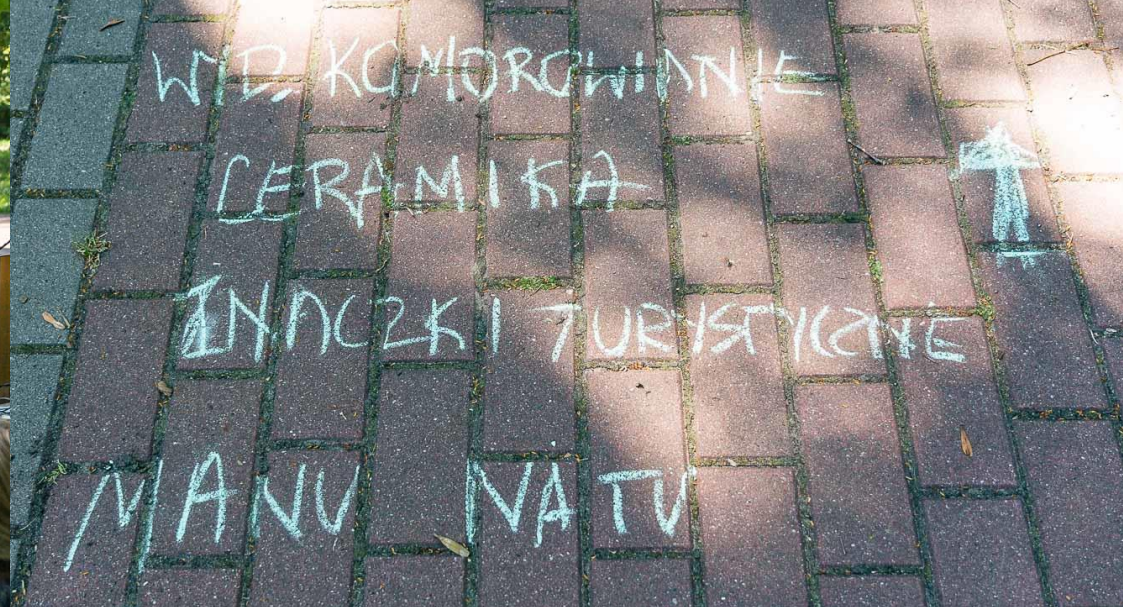 W D. KOMOROWIANIE
CERAMIKA
ZNACZKI TURYSTYCZNE
MANU NATU